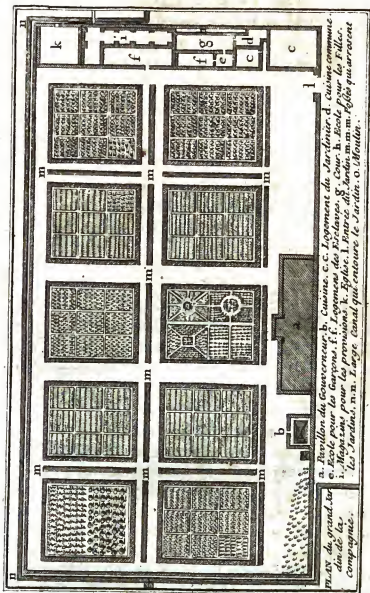 n
k
i
h
g
d
c
f
f
e
c
c
l
m
m
m
m
m
m
m
m
m
m
n
a
b
PLAN du grand Jar
din de la
Compagnie.
a. Pavillon du Gouverneur. b. Cuisine. c.c. Logement du Jardinier. d. Cuisine commune.
e. Ecole pour les Garçons. f.f. Logemens des Esclaves. g. Cour. h. Ecole pour les Filles.
i. Magazins pour les provisions. k. Eglise. l. Entrée du Jardin. m.m.m. Fossés qui arrosent
les Jardins. n.n. Large Canal qui entoure le Jardin. o. Moulin.